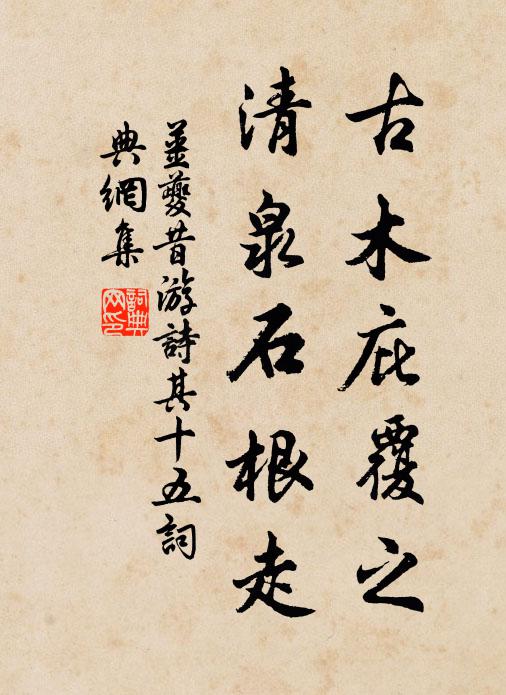 古木庇覆之
清泉石根走
姜夔昔游詩其十五詞
典網集
詞典
网印